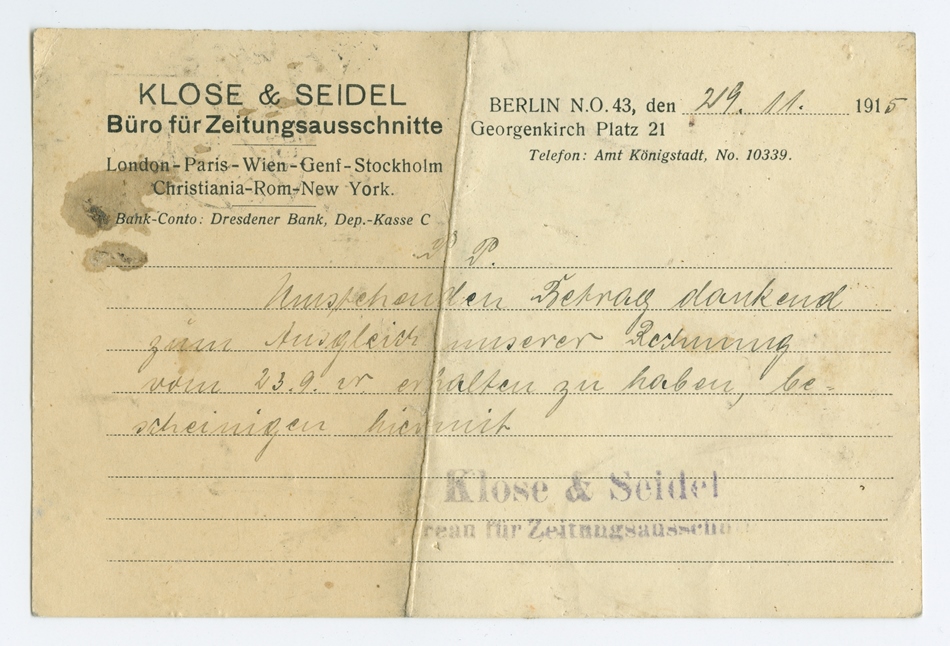 KLOSE & SEIDEL
Büro für Zeitungsausschnitte
London-Paris-Wien-Genf-Stockholm
Christiania-Rom-New York.
Bank-Conto: Dresdener Bank, Dep.-Kasse C
BERLIN N.O. 43, den 29. 11. 1915
Georgenkirch Platz 21
Telefon: Amt Königstadt, No. 10339.
P. P.
Umstehenden Betrag dankend
zum Ausgleich unserer Rechnung
vom 23.9. cr erhalten zu haben, be=
scheinigen hiermit
Klose & Seidel
reau für Zeitungsausschn